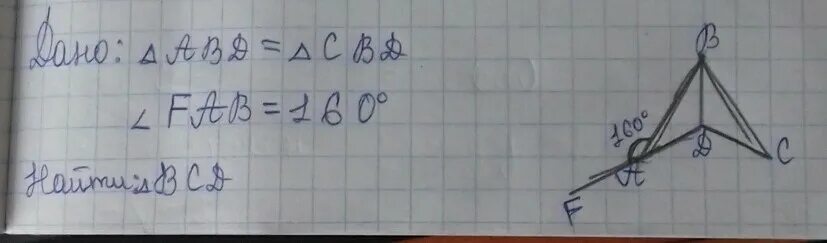 Дано: △ABD = △CBD
∠FAB = 160°
Найти: △BCD
B
160°
D
C
A
F